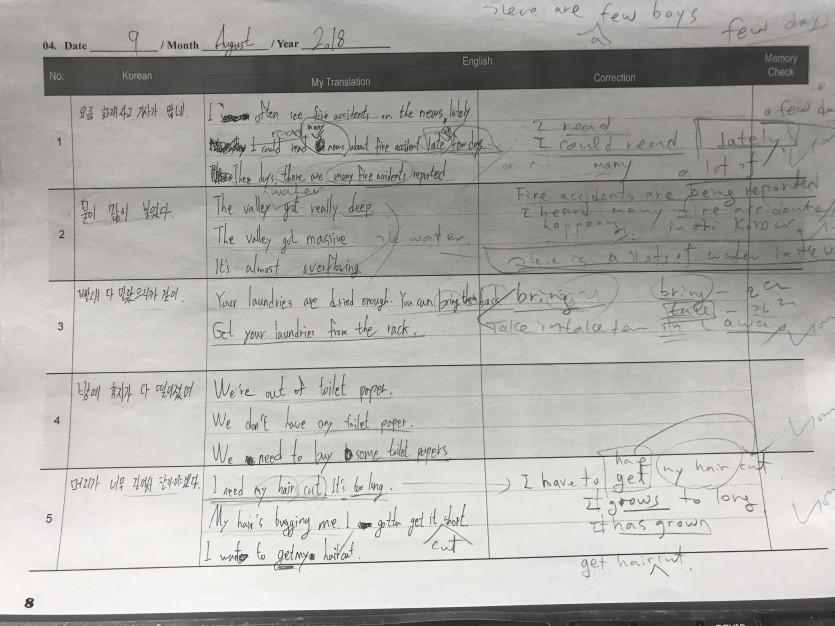 There are few boys
a
few day
04. Date 9 / Month August / Year 2018
No.
Korean
English
My Translation
Correction
Memory Check
1
요즘 화재사고 기사가 많네
I often see fire accidents on the news, lately.
read many
I could read news about fire accident late few days
These days, there are many fire accidents reported
I read
I could read
lately
a few da
many
a lot of
Fire accidents are being reported
I heard many fire accidents
happening in the Korea
2
물이 많이 불었다.
water
The valley got really deep.
The valley got massive
the water
It's almost overflowing.
There is a lots of water in the
3
빨래 다 말랐으니까 걷어.
Your laundries are dried enough. You can bring them back
Get your laundries from the rack.
bring
bring
take
take in take
in
away
4
휴지가 다 떨어졌어
We're out of toilet paper.
We don't have any toilet paper.
We need to buy some toilet papers
5
머리가 너무 길어서 잘라야겠다.
I need my hair cut. It's too long.
My hair's bugging me. I gotta get it short.
cut
I want to get my haircut.
I have to get my hair cut.
have
It grows to long
it has grown
get haircut.
8